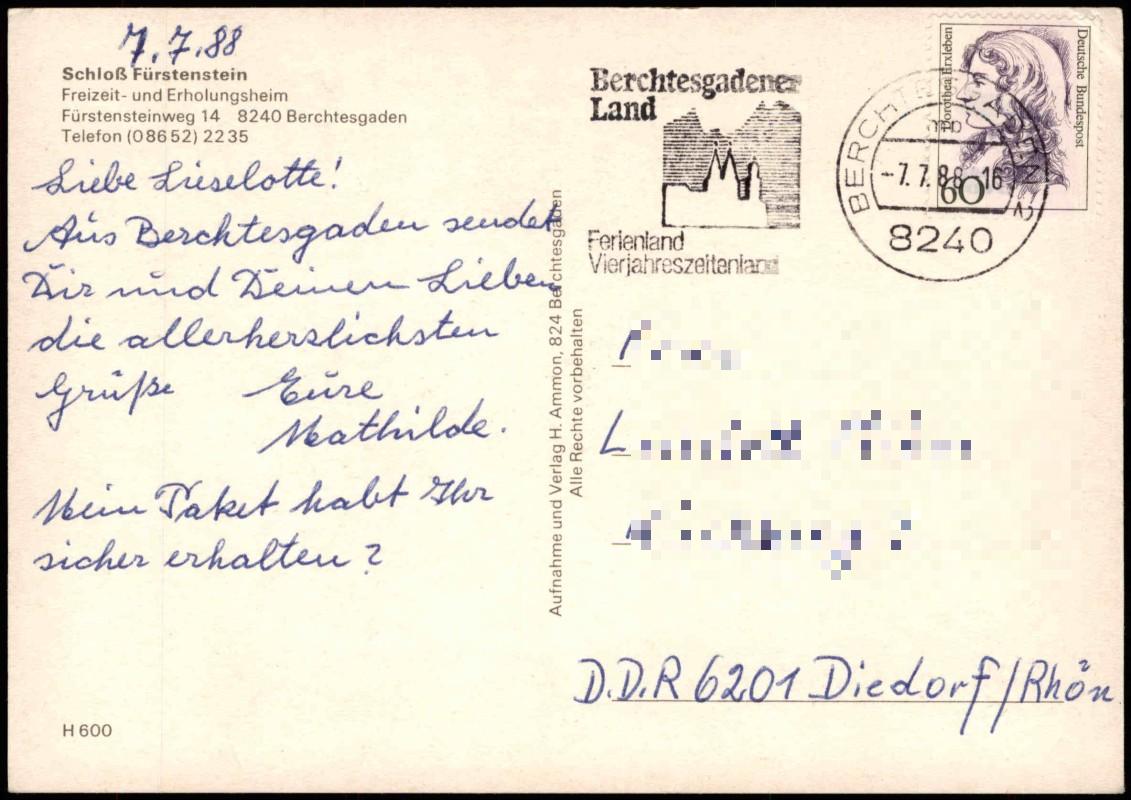 7.7.88
Schloß Fürstenstein
Freizeit- und Erholungsheim
Fürstensteinweg 14 8240 Berchtesgaden
Telefon (0 86 52) 22 35
Liebe Lieselotte!
Aus Berchtesgaden sendet
Dir und Deinen Lieben
die allerherzlichsten
Grüße Eure
Mathilde.
Mein Paket habt Ihr
sicher erhalten?
H 600
Aufnahme und Verlag H. Ammon, 824 Berchtesgaden
Alle Rechte vorbehalten
Berchtesgadener
Land
Ferienland
Vierjahreszeitenland
BERCHTESGADEN
mb
-7.7.88-16
8240
Dorothea Erxleben
Deutsche Bundespost
60
D.D.R 6201 Diedorf/Rhön